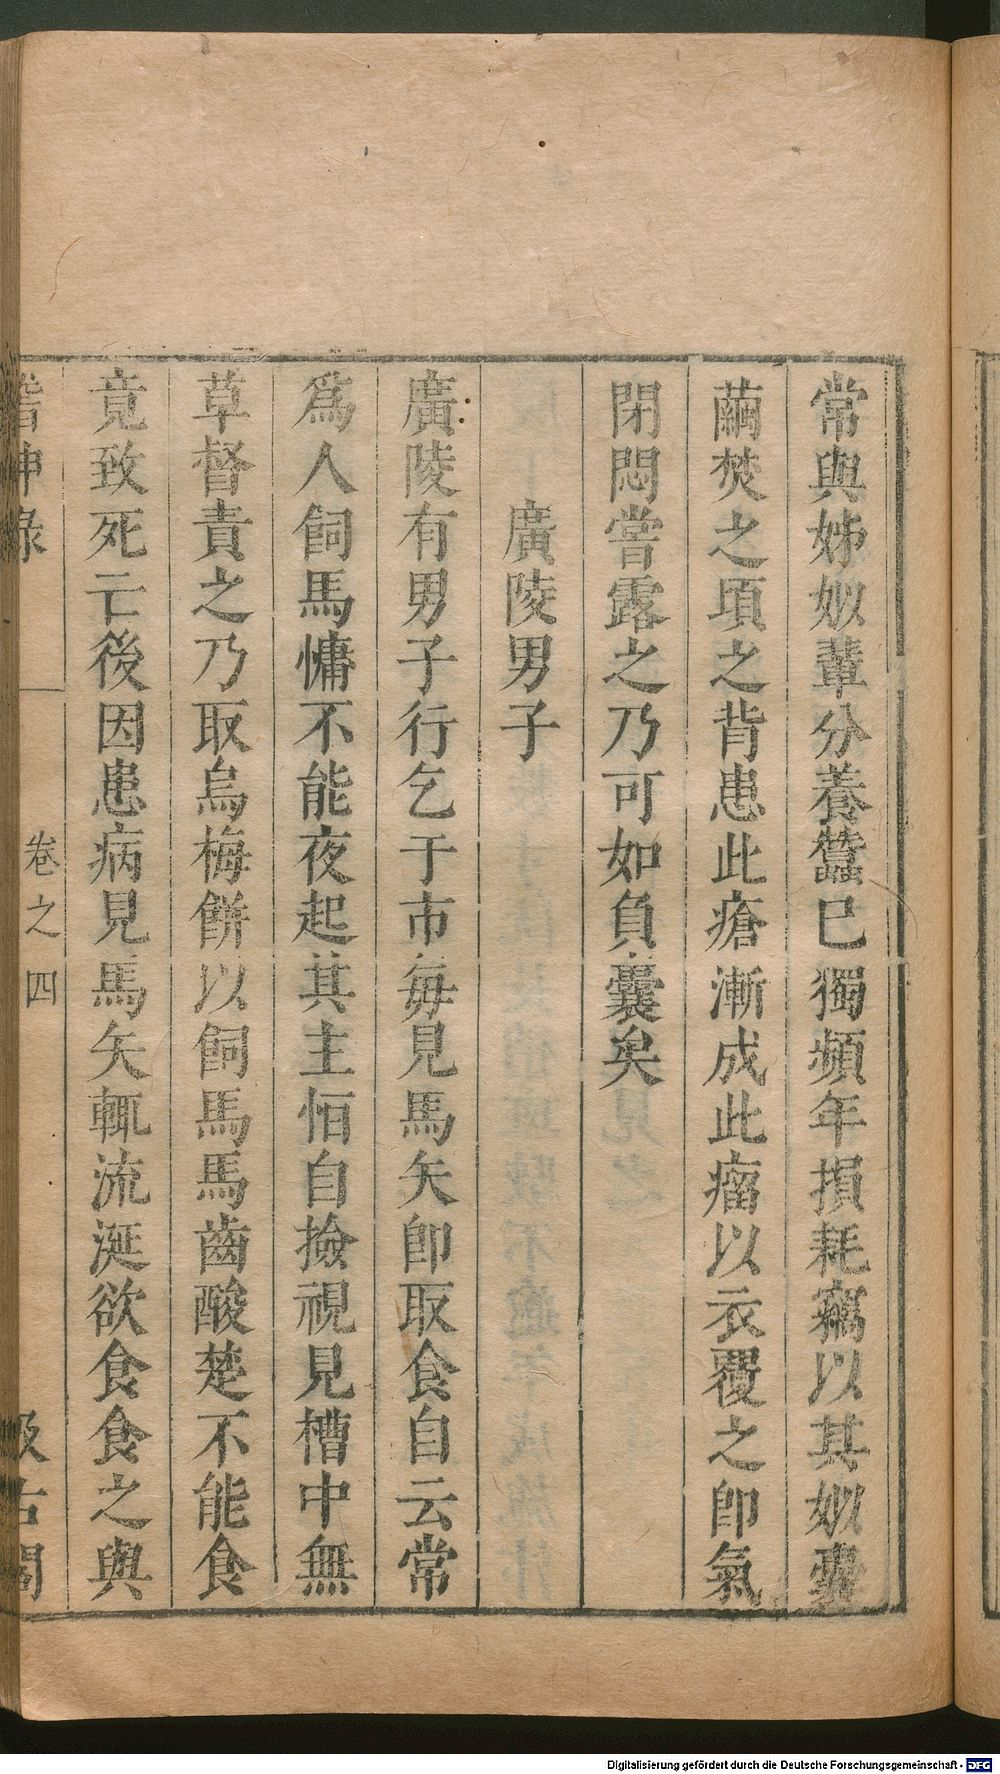 常與姊姒輩分養蠶已獨頻年損耗竊以其姒囊
繭焚之頃之背患此瘡漸成此瘤以衣覆之卽氣
閉悶嘗露之乃可如負囊矣
廣陵男子
廣陵有男子行乞于市每見馬矢卽取食自云常
爲人飼馬慵不能夜起其主恒自撿視見槽中無
草督責之乃取烏梅餅以飼馬馬齒酸楚不能食
竟致死亡後因患病見馬矢輒流涎欲食食之與
稽神錄 卷之四 汲古閣
Digitalisierung gefördert durch die Deutsche Forschungsgemeinschaft - DFG